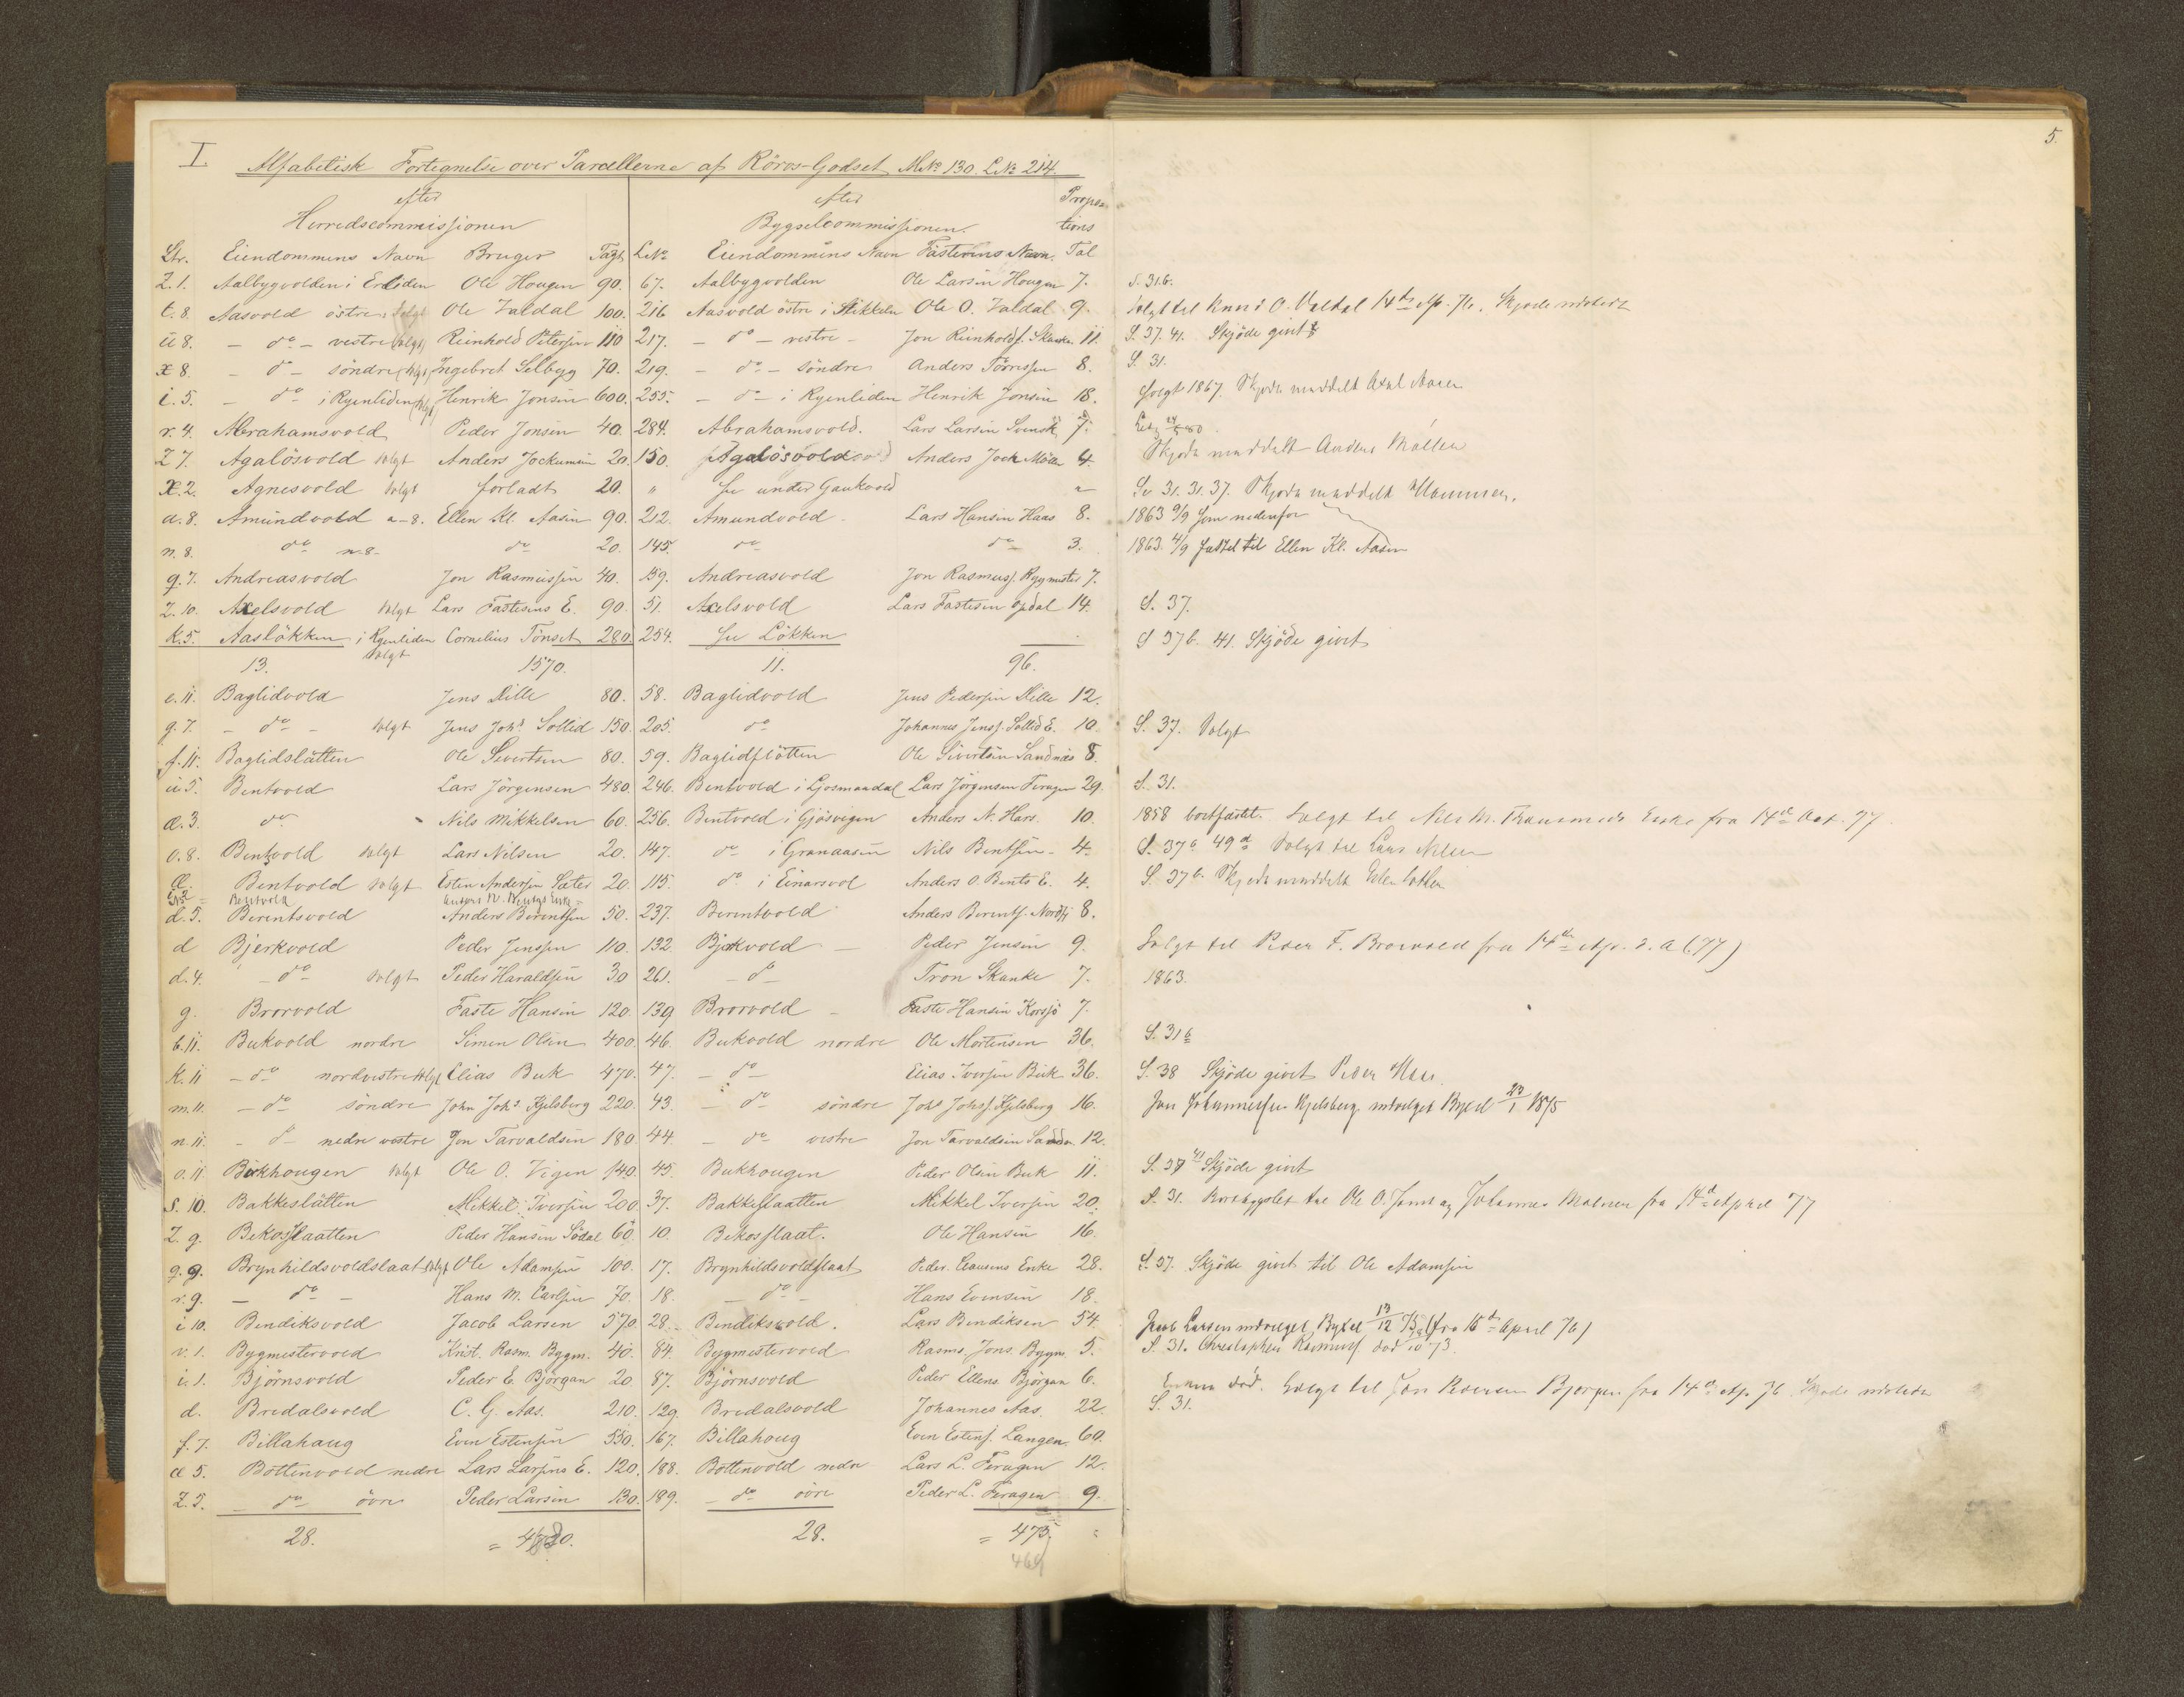 5.
I
Alfabetisk Fortegnelse over Parcellerne af Röros-Godset M.No 130. L.No 214.
efter efter Propor-
Herredscommissionen Bygselcommissionen. tions
Ltr. Eiendommens Navn Bruger Taxt L.No Eiendommens Navn Fästerens Navn. Tal
Z. 1. Aalbygvolden i Erliden Ole Hougen 90. 67. Aalbygvolden Ole Larsen Hougen 7. S. 31 b.
t. 8. Aasvold östre solgt Ole Valdal 100. 216 Aasvold östre i Stikkeln Ole O. Valdal 9. Solgt til Knud O. Valdal 14de Ap. 76. Skjøde udstedt
ü 8. – do – vestre (solgt) Reinhold Petersen 110 217. – do – vestre – Jon Reinholds. Skanke 11. S. 37. 41. Skjöde givet
æ 8. – do – söndre (solgt) Ingebret Selbyg 70. 219. – do – söndre Anders Törresen 8. S. 31.
i. 5. – do i Ryenliden (solgt) Henrik Jonsen 600. 255. – do – i Ryenliden Henrik Jonsen 18. Solgt 1867. Skjøde meddelt Axel Aasen
r. 4. Abrahamsvold Peder Jonsen 40. 284. Abrahamsvold. Lars Larsen Svensk 7.
Z 7. Agalösvold solgt Anders Jockumsen 20. 150. Agalösvold Anders Jock Möller 4. Skjøde meddelt Anders Möller
Æ. 2. Agnesvold solgt forladt 20. " See under Gaukvold " Se 31. 31. 37. Skjøde meddelt
a. 8. Amundvold a–8. Ellen Kl. Aasen 90. 212. Amundvold. Lars Hansen Haas 8. 1863 9/9 Som nedenfor
n. 8. do n.8– do 20. 145. do do 3. 1863. 4/9 fästet til Ellen Kl. Aasen
q. 7. Andreasvold Jon Rasmussen 40. 159. Andreasvold Jon Rasmuss. Bygmester 7.
Z. 10. Axelsvold solgt Lars Fastesens E. 90. 51. Axelsvold Lars Fastesen Opdal 14. S. 37.
k. 5. Aaslökken i Ryenliden Cornelius Tönset 280. 254. See Lökken S 37 b. 41. Skjöde givet
solgt
13. 1570. 11. 96.
e. 11. Baglidvold Jens Dille 80. 58. Baglidvold Jens Pedersen Dille 12.
g. 7. – do – solgt Jens Johs Sollid 150. 205. do Johannes Jenss. Sollid E. 10. S. 37. Solgt
f. 11. Baglidslätten Ole Sivertsen 80. 59. Baglidslötten Ole Sivertsen Sandnäs 8.
ü 5. Bentvold Lars Jörgensen 480. 246. Bentvold i Gjosmaadal Lars Jörgensen Feragen 29. S. 31.
æ. 3. do Nils Mikkelsen 60. 256. Bentvold i Gjösvigen Anders N. Hars. 10. 1858 bortfæstet. Solgt til Nils M. Enke fra 14de Oct. 77
o. 8. Bentvold solgt Lars Nilsen 20. 147. do i Granaasen Nils Bentsen – 4. S. 37 a 49 d Solgt til Lars Nilsen
Bentvold solgt Esten Andersen Sæter 20. 115. do i Einarsvol Anders O. Bents E. 4. S. 37 b. Skjøde meddelt
Bentvold Anders N. Bentses Enke
d. 5. Berentsvold Anders Berentsen 50. 237. Berentvold Anders Berents. Nordfj 8.
d Bjerkvold Peder Jenssen 110. 132 Bjerkvold – Peder Jensen 9. Solgt til Peder F. Brorvold fra 14de Ap. d. A (77)
d. 4. – do – solgt Peder Haraldsen 30 261. – do Tron Skanke 7. 1863.
g. Brorvold Faste Hansen 120. 139 Brorvold – Faste Hansen Korssjö 7.
b. 11. Bukvold nordre Simen Olsen 400. 46. Bukvold nordre Ole Mortensen 36. S. 31 b
k. 11 – do nordvestre solgt Elias Buk 470. 47. – do Elias Iversen Buk 36. S. 38 Skjöde givet Peder
m. 11. – do söndre John Johs Kjelsberg 220. 43. – do söndre Johs Johss. Kjelsberg 16. Jon Johannessen Kjelsberg meddelt Byxel 23/1 1875
n. 11. – do – nedre vestre Jon Tarvaldsen 180. 44. – do vestre Jon Tarvaldsen 12.
o. 11. Bukhougen solgt Ole O. Vigen 140. 45. Bukhougen Peder Olsen Buk 11. S. 37 41 Skjöde givet
s. 10. Bakkeslätten Mikkel Iversen 200. 37. Bakkeslaatten Mikkel Iversen 20. S. 31. Bortbygslet til Ole O. og Johannes fra 14de April 77
Z. 9. Bekosslaatten Peder Hansen Södal 60. 10. Bekosslaat. Ole Hansen 16.
q. 9. Brynhildsvoldslaat solgt Ole Adamsen 100. 17. Brynhildsvoldslaat Peder Clausens Enke 28. S. 37. Skjöde givet til Ole Adamsen
r. 9. – do – Hans M. Carlsen 70. 18. – do – Hans Evensen 18.
i 10. Bendiksvold Jacob Larsen 570. 28. Bendiksvold. Lars Bendiksen 54. Jacob Larsen meddelt Byxel 13/12 75 (fra 15de April 76)
v. 1. Bygmestervold Krist. Rasm. Bygm. 40. 84. Bygmestervold Rasms. Jons. Bygm. 5. S. 31. Christopher Rasmuss. død 73.
i. 1. Björnsvold Peder E. Björgan 20. 87. Björnsvold Peder Ellens. Björgan 6. Enken död. Solgt til Jon Pedersen Bjorgen fra 14de Ap. 76. Skjøde udstedt
d. Bredalsvold C. G. Aas. 210. 129. Bredalsvold Johannes Aas. 22. S. 31.
f. 7. Billahaug Even Estensen 550. 167. Billahoug Even Estens. Langen. 60.
æ 5. Bottenvold nedre Lars Larsens E. 120. 188. Bottenvold nedre Lars L. Feragen 12.
Z. 5. – do övre Peder Larsen 130. 189. – do övre Peder L. Feragen 9.
28. 28. = 475.
469